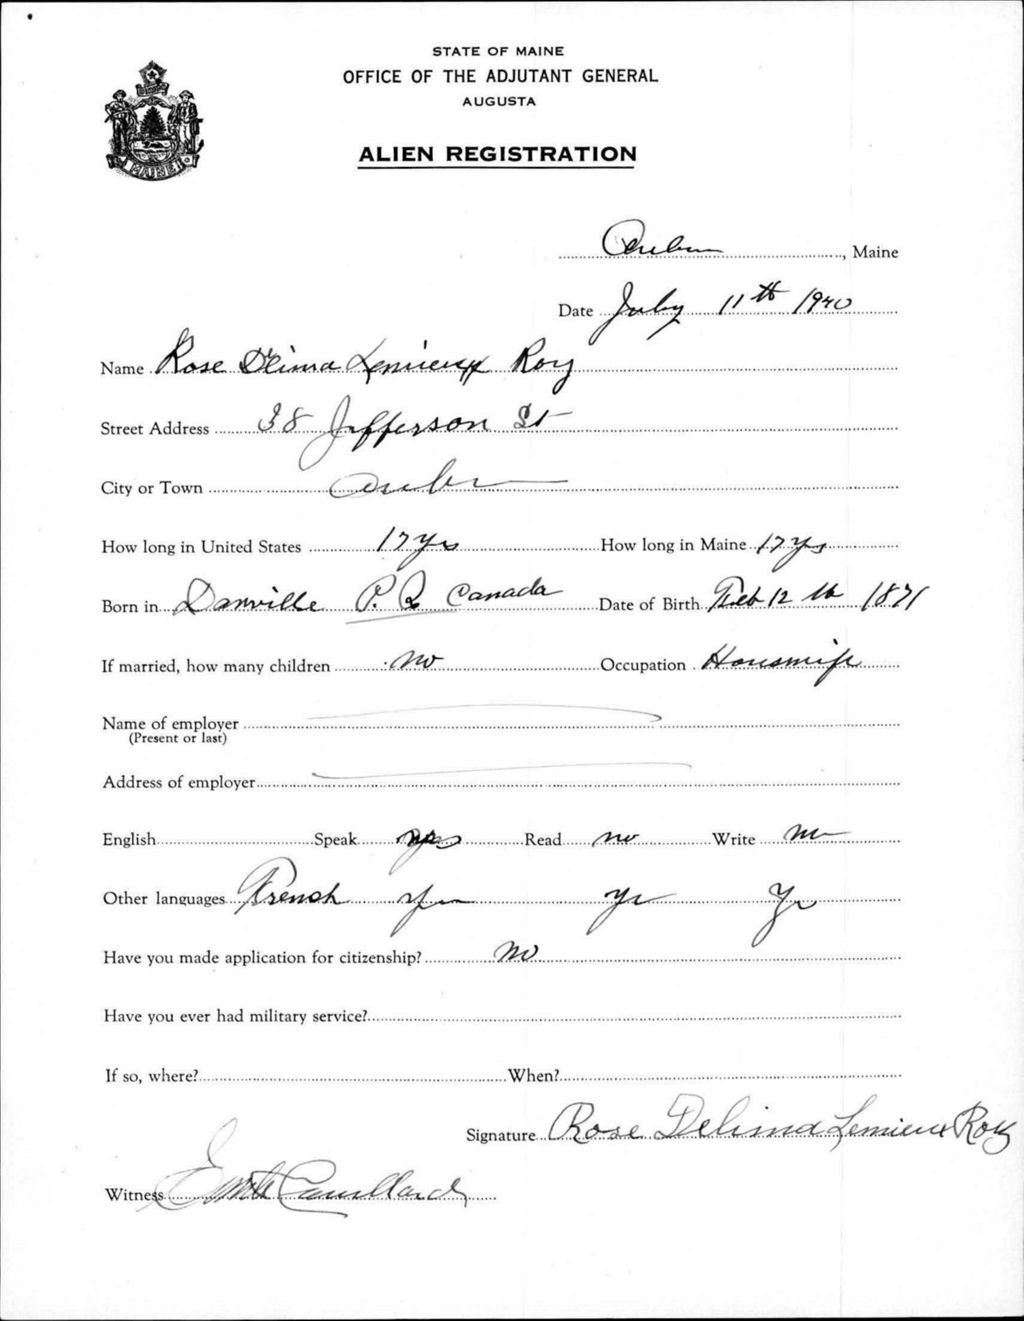 STATE OF MAINE
OFFICE OF THE ADJUTANT GENERAL
AUGUSTA
ALIEN REGISTRATION
MAINE
Auburn, Maine
Date July 11th 1940
Name Rose Delima Lemieux Roy
Street Address 38 Jefferson St
City or Town Auburn
How long in United States 17 yrs How long in Maine 17 yrs
Born in Danville P. Q. Canada Date of Birth Feb 12 th 1871
If married, how many children no Occupation Housewife
Name of employer
(Present or last)
Address of employer
English Speak yes Read no Write no
Other languages French yes yes yes
Have you made application for citizenship? No
Have you ever had military service?
If so, where? When?
Signature Rose Delima Lemieux Roy
Witness